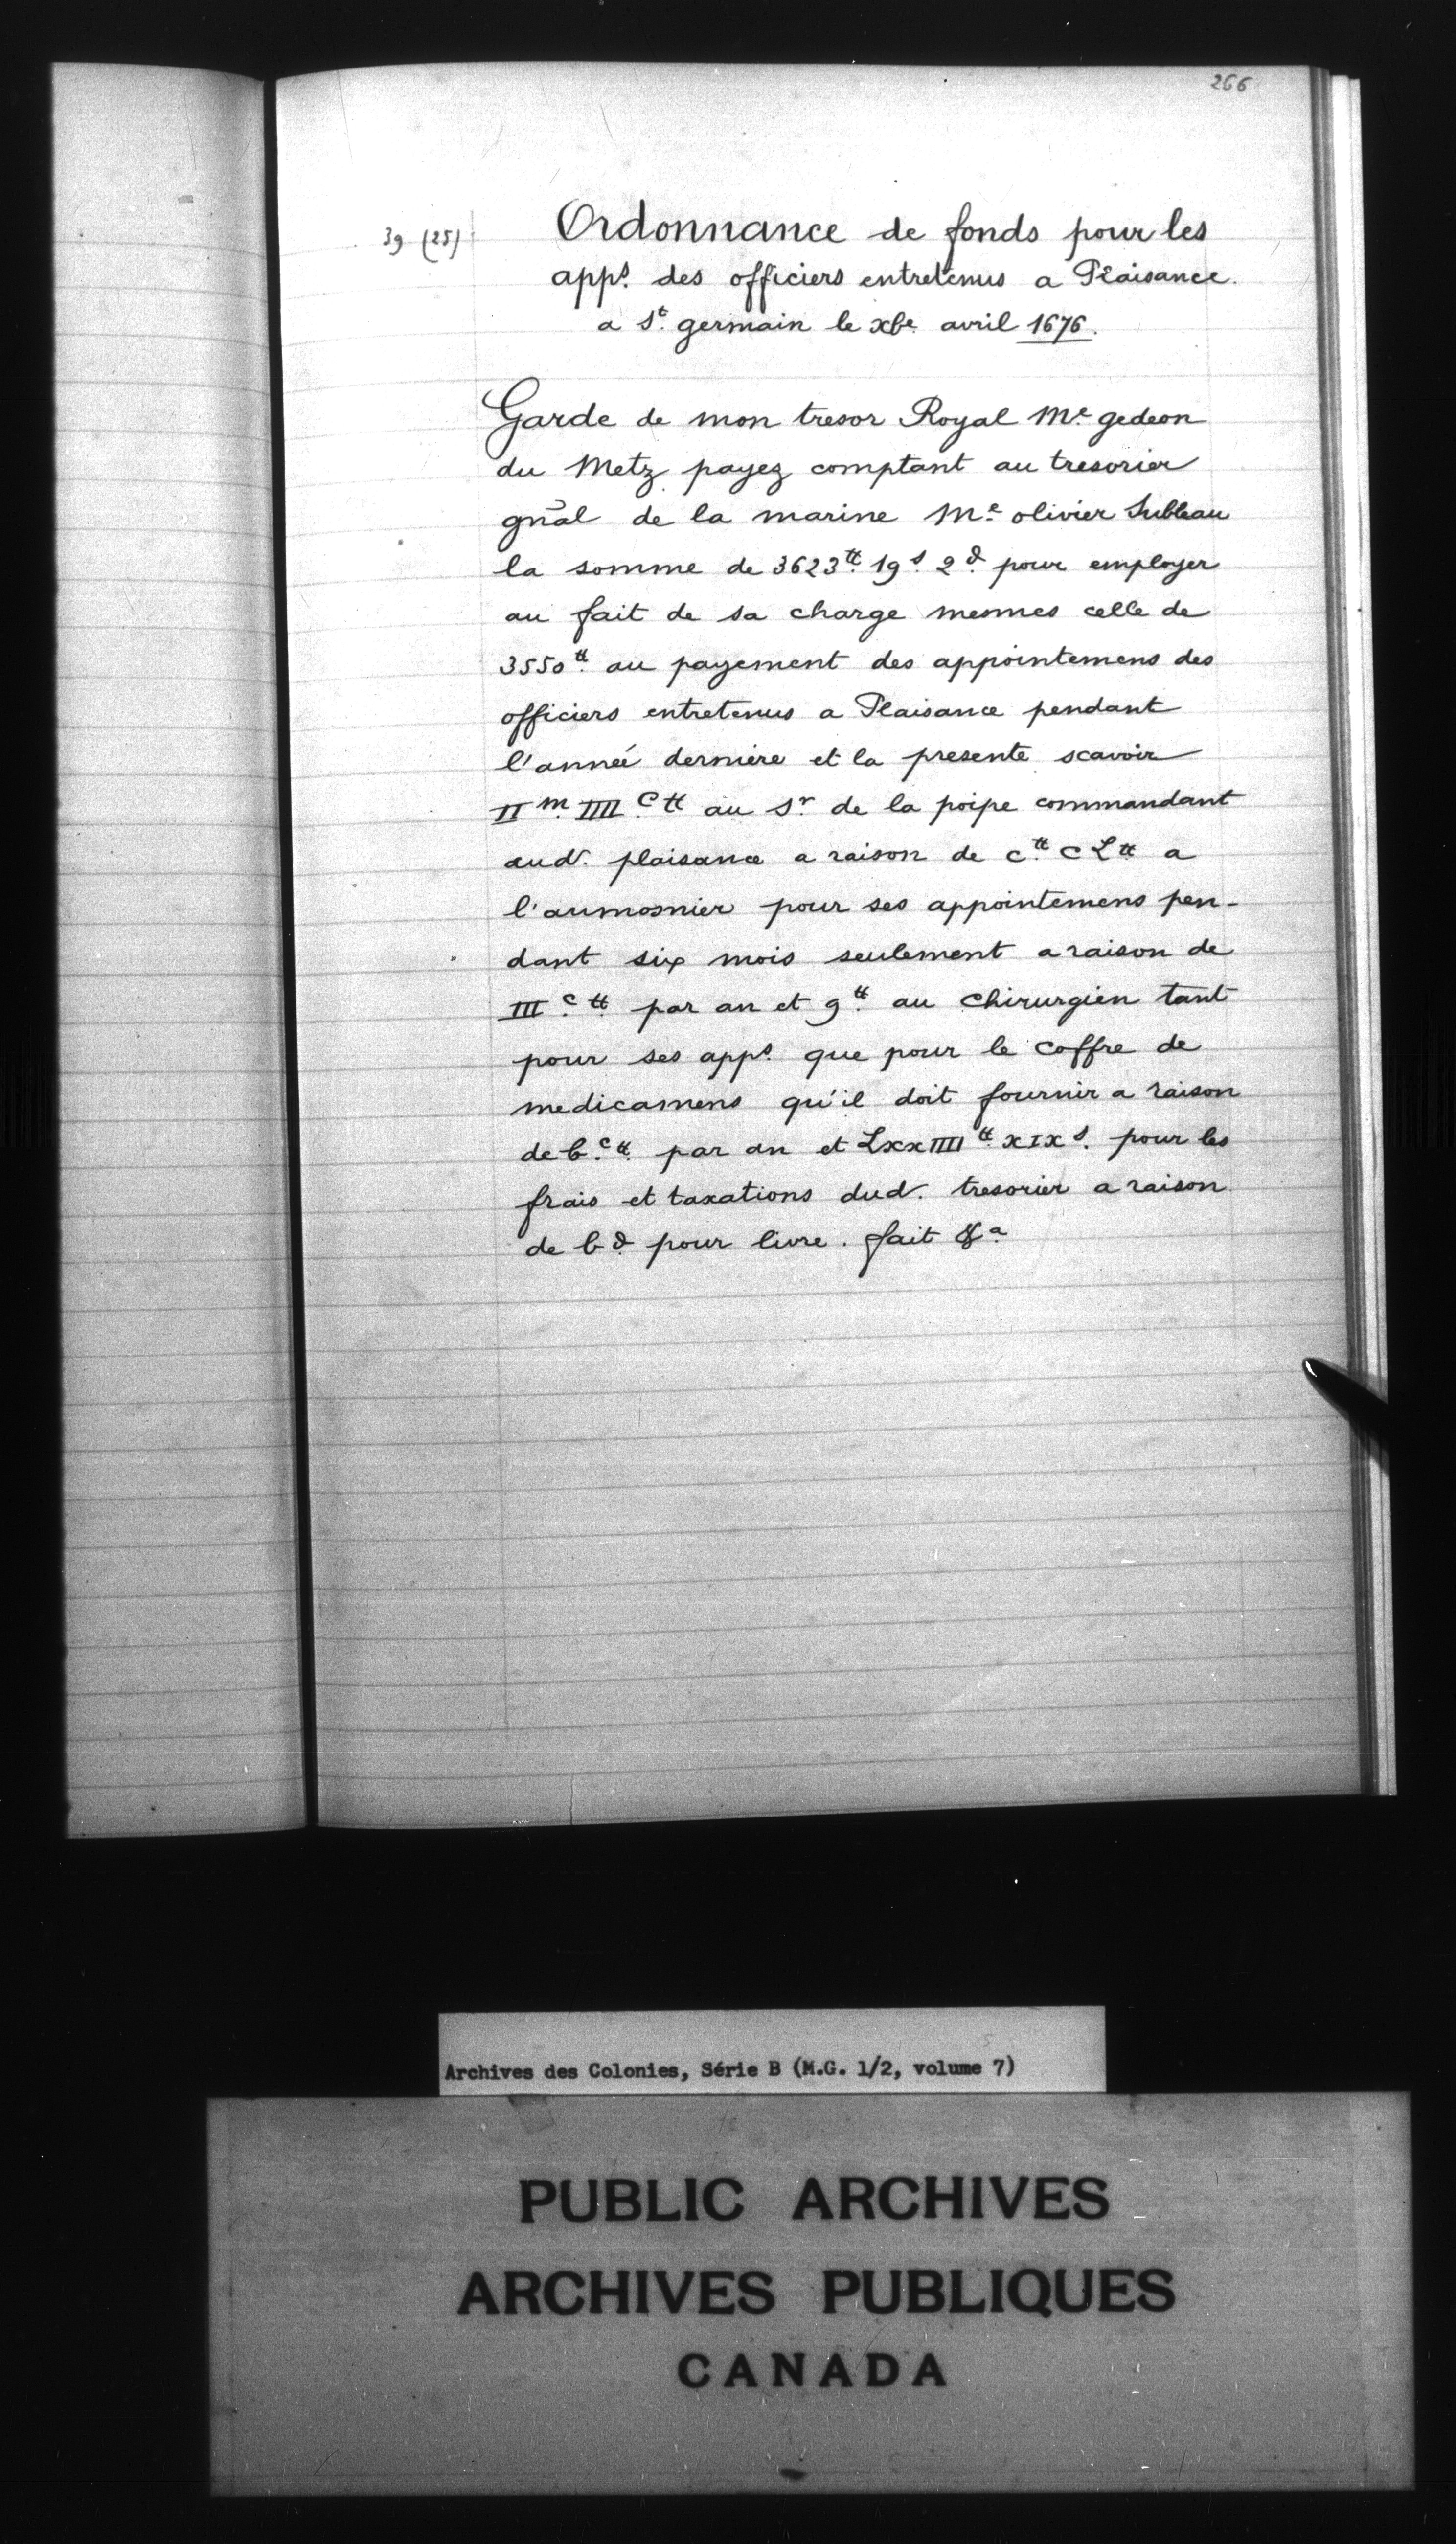 266
39 (25)
Ordonnance de fonds pour les
app.s des officiers entretenus a Plaisance.
a S.t germain le xbe avril 1676.
Garde de mon tresor Royal M.e gedeon
du Metz payez comptant au tresorier
gnāl de la marine M.e olivier Subleau
la somme de 3623.tt 19.s 2.d pour employer
au fait de sa charge mesmes celle de
3550.tt au payement des appointemens des
officiers entretenus a Plaisance pendant
l'anneé derniere et la presente scavoir
II.m IIII.c tt au S.r de la poipe commandant
aud. plaisance a raison de c.tt c L tt a
l'aumosnier pour ses appointemens pen-
dant six mois seulement a raison de
III.c tt par an et 9.tt au chirurgien tant
pour ses app.s que pour le coffre de
medicamens qu'il doit fournir a raison
de b.c tt par an et LxxIIII.tt xIx s. pour les
frais et taxations dud. tresorier a raison
de b d. pour livre. fait &.a
Archives des Colonies, Série B (M.G. 1/2, volume 7)
5
PUBLIC ARCHIVES
ARCHIVES PUBLIQUES
CANADA